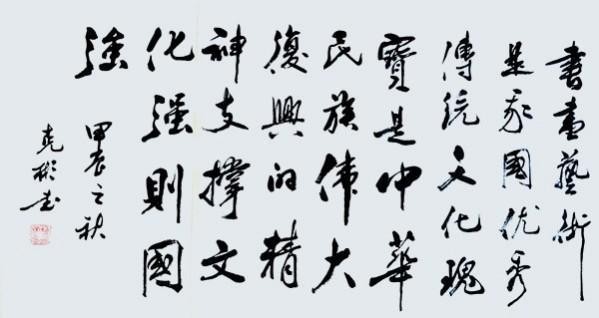 書畫藝術
是我國优秀
傳統文化瑰
寶是中華
民族偉大
復興的精
神支撑文
化强則國
強
甲辰之秋
克彬书